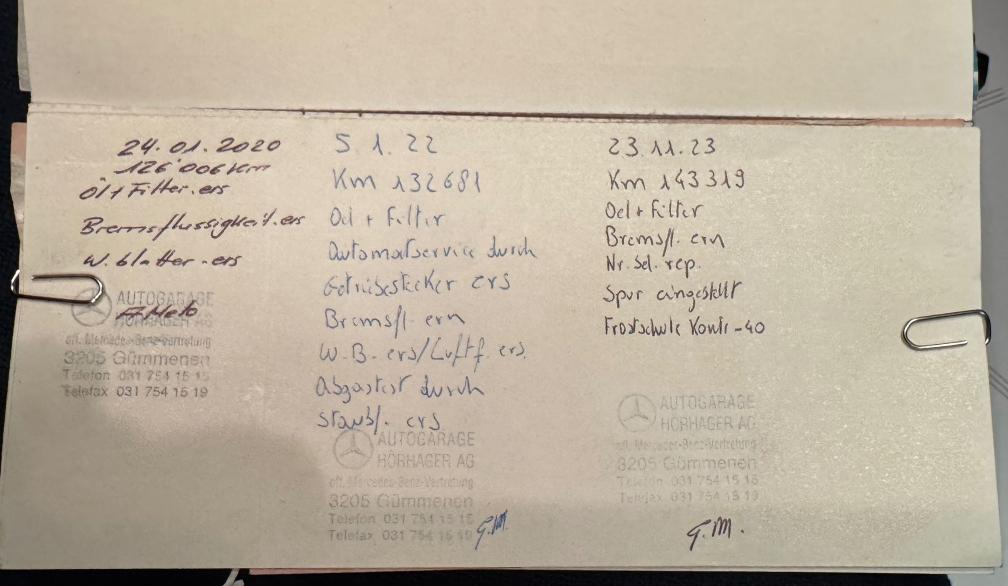 24.01.2020
126'006 km
Öl + Filter. ers
Bremsflüssigkeit. ers
W. blatter. ers
AUTOGARAGE
HÖRHAGER AG
off. Mercedes-Benz-Vertretung
3205 Gümmenen
Telefon 031 754 15 15
Telefax 031 754 15 19
5.1.22
Km 132681
Oel + Filter
Automatservice durch
Getriebestecker ers
Bremsfl. ern
W.B. ers/Luftf. ers.
Abgastest durch
Staubf. ers
AUTOGARAGE
HÖRHAGER AG
off. Mercedes-Benz-Vertretung
3205 Gümmenen
Telefon 031 754 15 15
Telefax 031 754 15 19
G.M.
23.11.23
Km 143319
Oel + Filter
Bremsfl. ern
Nr. Sel. rep.
Spur eingestellt
Frostschutz Kontr -40
AUTOGARAGE
HÖRHAGER AG
off. Mercedes-Benz-Vertretung
3205 Gümmenen
Telefon 031 754 15 15
Telefax 031 754 15 19
G.M.